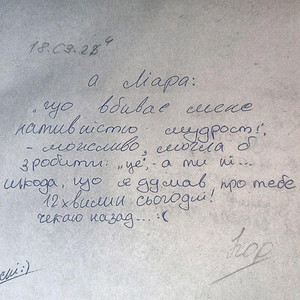 а Мара:
"що вбиває мене
наївністю мудрост!,
- можливо, могла б
зробити "це", - а ти ні...
шкода, що я думав, про тебе
12 хвилин сьогодні!
чекаю назад... :(